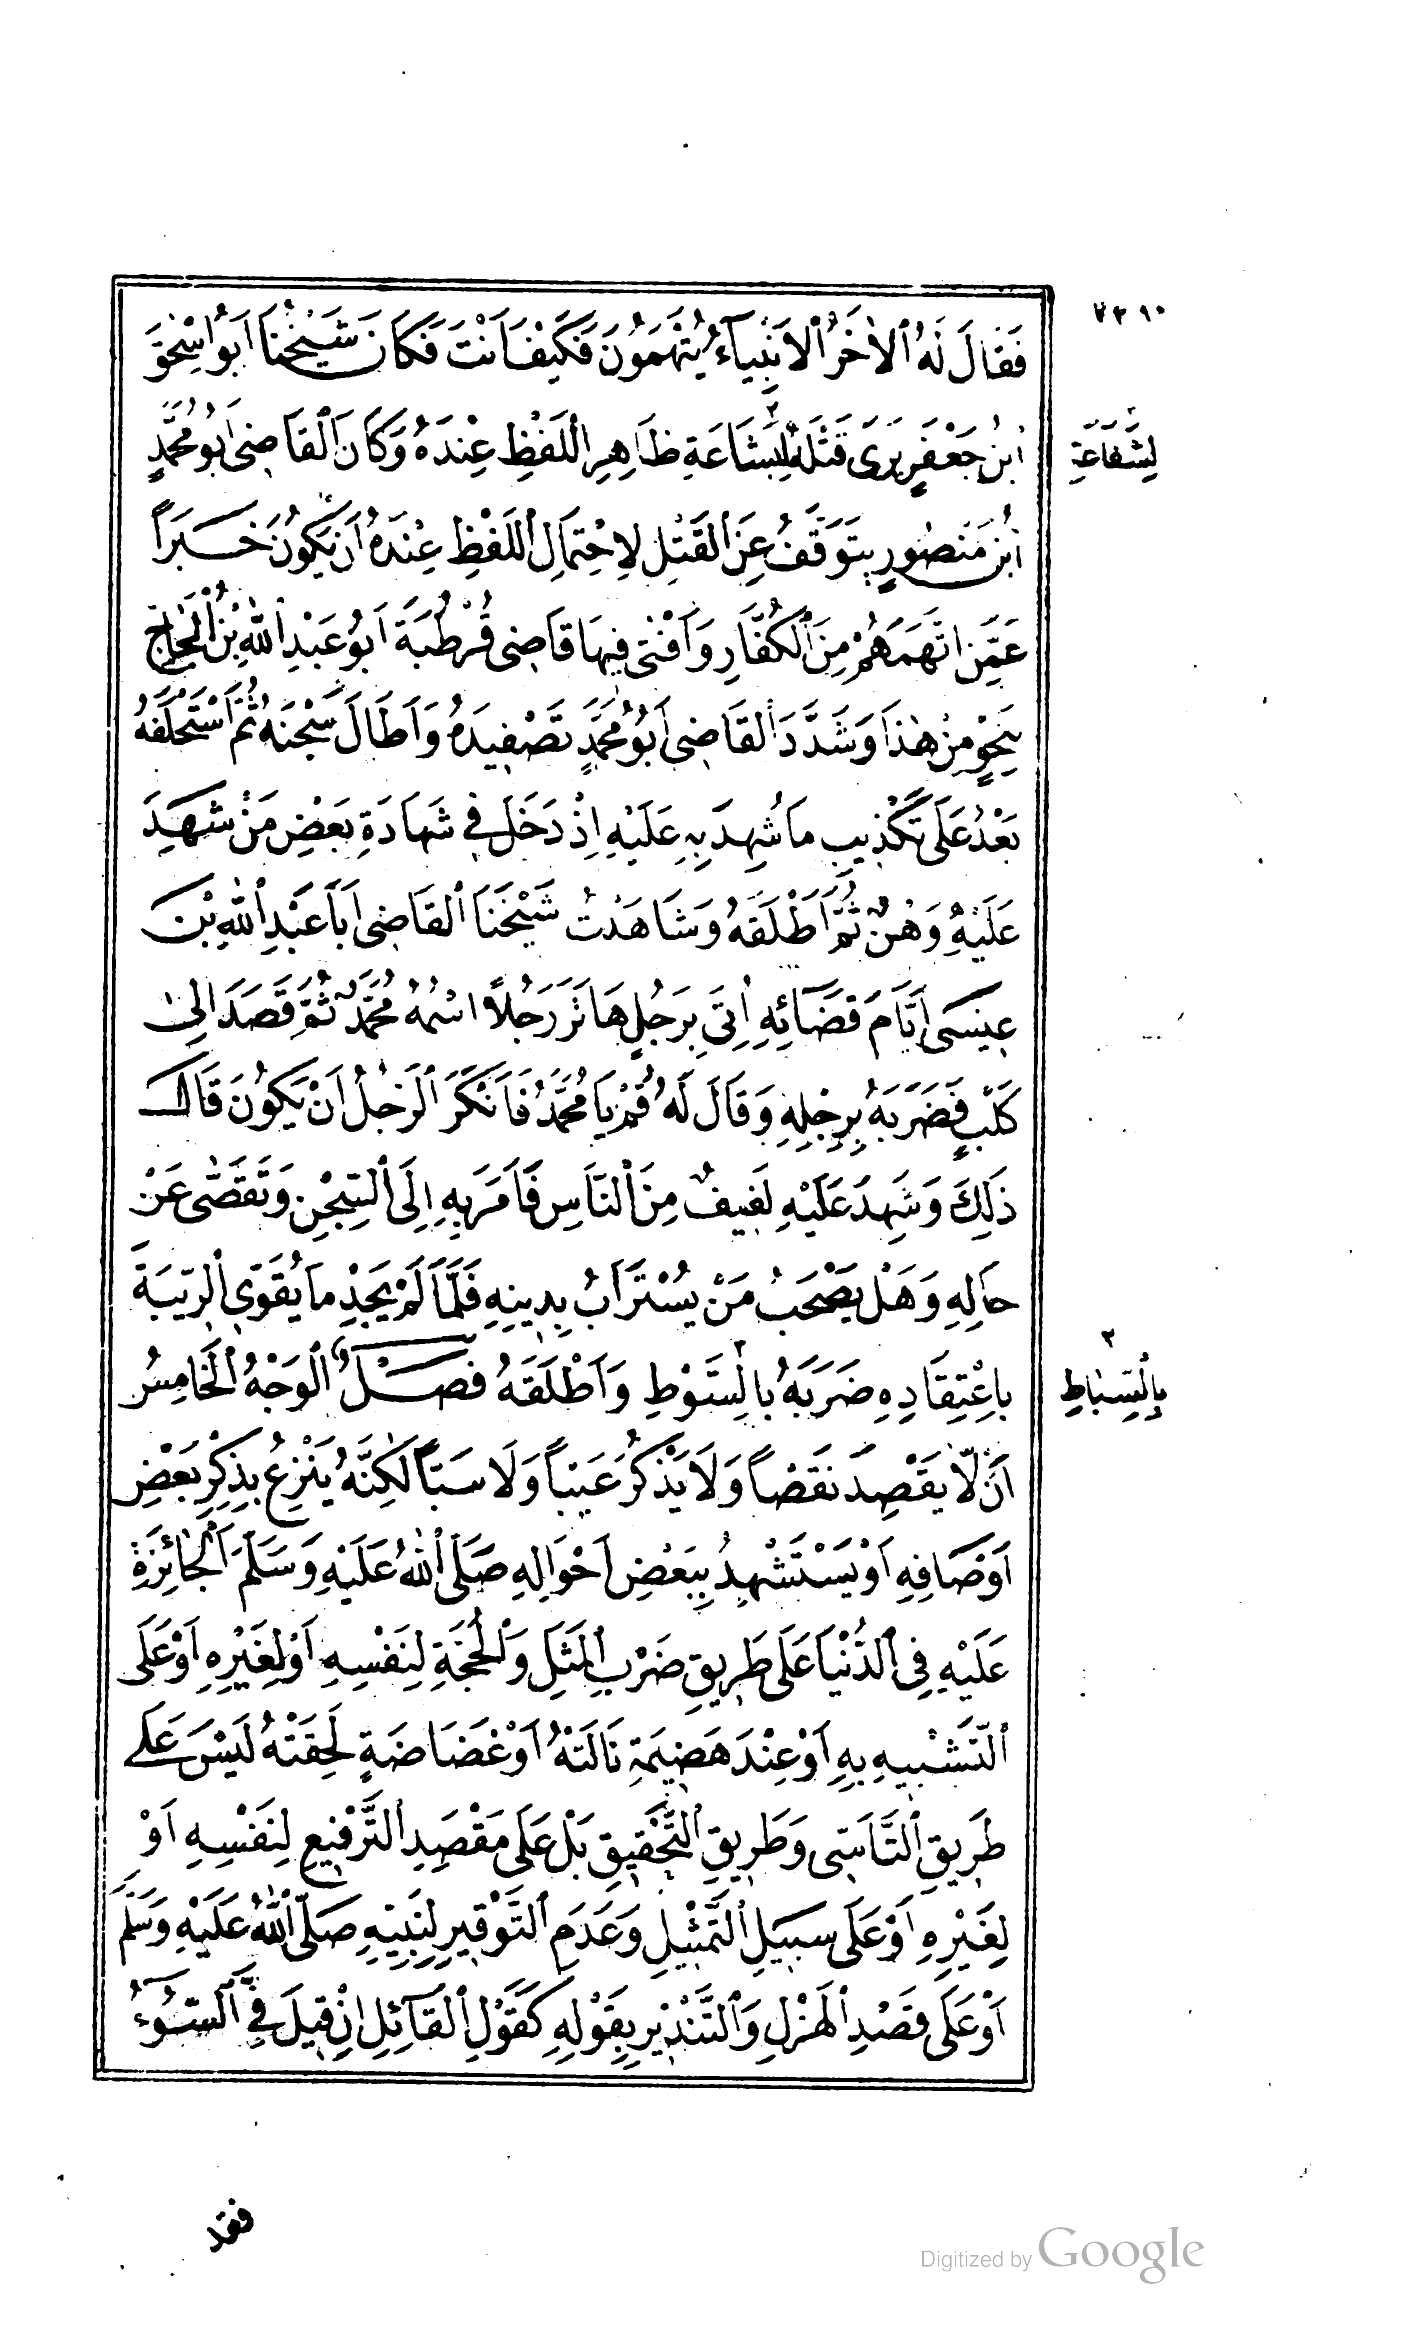 فَقَالَ لَهُ ٱلْاٰخَرُ ٱلْاَنْبِيَآءُ يُتَّهَمُونَ فَكَيْفَ اَنْتَ فَكَانَ شَيْخُنَا اَبُو اِسْحٰقَ
ابْنُ جَعْفَرٍ يَرٰى قَتْلَهُ لِبَشَاعَةِ ظَاهِرِ اللَّفْظِ عِنْدَهُ وَكَانَ ٱلْقَاضِى اَبُو مُحَمَّدٍ
لِشَفَاعَةِ
ابْنُ مَنْصُورٍ يَتَوَقَّفُ عَنِ ٱلْقَتْلِ لِاِحْتِمَالِ ٱللَّفْظِ عِنْدَهُ اَنْ يَكُونَ خَبَراً
عَمَّنِ اتَّهَمَهُمْ مِنَ ٱلْكُفَّارِ وَاَفْتٰى فِيهَا قَاضِى قُرْطُبَةَ اَبُو عَبْدِ ٱللّٰهِ بْنُ ٱلْحَاجِّ
بِنَحْوٍ مِنْ هٰذَا وَشَدَّدَ ٱلْقَاضِى اَبُو مُحَمَّدٍ تَصْفِيدَهُ وَاَطَالَ سِجْنَهُ ثُمَّ اسْتَحْلَفَهُ
بَعْدُ عَلَى تَكْذِيبِ مَا شُهِدَ بِهِ عَلَيْهِ اِذْ دَخَلَ فِى شَهَادَةِ بَعْضِ مَنْ شَهِدَ
عَلَيْهِ وَهْنٌ ثُمَّ اَطْلَقَهُ وَشَاهَدْتُ شَيْخَنَا ٱلْقَاضِى اَبَا عَبْدِ ٱللّٰهِ بْنَ
عِيسَى اَيَّامَ قَضَآئِهِ اُتِىَ بِرَجُلٍ هَاتَرَ رَجُلاً اسْمُهُ مُحَمَّدٌ ثُمَّ قَصَدَ اِلٰى
كَلْبٍ فَضَرَبَهُ بِرِجْلِهِ وَقَالَ لَهُ قُمْ يَا مُحَمَّدُ فَاَنْكَرَ ٱلرَّجُلُ اَنْ يَكُونَ قَالَ
ذٰلِكَ وَشَهِدَ عَلَيْهِ لَفِيفٌ مِنَ ٱلنَّاسِ فَاَمَرَ بِهِ اِلَى ٱلسِّجْنِ وَتَقَصّٰى عَنْ
حَالِهِ وَهَلْ يَصْحَبُ مَنْ يُسْتَرَابُ بِدِينِهِ فَلَمَّا لَمْ يَجِدْ مَا يُقَوِّى ٱلرِّيبَةَ
بِاعْتِقَادِهِ ضَرَبَهُ بِالسَّوْطِ وَاَطْلَقَهُ فَصْلٌ ٱلْوَجْهُ ٱلْخَامِسُ
٢
بِالسِّيَاطِ
اَنْ لَّا يَقْصِدَ نَقْصاً وَلَا يَذْكُرَ عَيْباً وَلَا سَبّاً لٰكِنَّهُ يَنْزِعُ بِذِكْرِ بَعْضِ
اَوْصَافِهِ اَوْ يَسْتَشْهِدُ بِبَعْضِ اَحْوَالِهِ صَلَّى ٱللّٰهُ عَلَيْهِ وَسَلَّمَ ٱلْجَائِزَةِ
عَلَيْهِ فِى ٱلدُّنْيَا عَلَى طَرِيقِ ضَرْبِ ٱلْمَثَلِ وَٱلْحُجَّةِ لِنَفْسِهِ اَوْ لِغَيْرِهِ اَوْ عَلَى
ٱلتَّشْبِيهِ بِهِ اَوْ عِنْدَ هَضِيمَةٍ نَالَتْهُ اَوْ غَضَاضَةٍ لَحِقَتْهُ لَيْسَ عَلَى
طَرِيقِ ٱلتَّاَسِّى وَطَرِيقِ ٱلتَّحْقِيقِ بَلْ عَلَى مَقْصِدِ ٱلتَّرْفِيعِ لِنَفْسِهِ اَوْ
لِغَيْرِهِ اَوْ عَلَى سَبِيلِ ٱلتَّمْثِيلِ وَعَدَمِ ٱلتَّوْقِيرِ لِنَبِيِّهِ صَلَّى ٱللّٰهُ عَلَيْهِ وَسَلَّمَ
اَوْ عَلَى قَصْدِ ٱلْهَزْلِ وَٱلتَّنْذِيرِ بِقَوْلِهِ كَقَوْلِ ٱلْقَآئِلِ اِنْ قِيلَ فِىَّ ٱلسُّوءُ
فقد
Digitized by Google